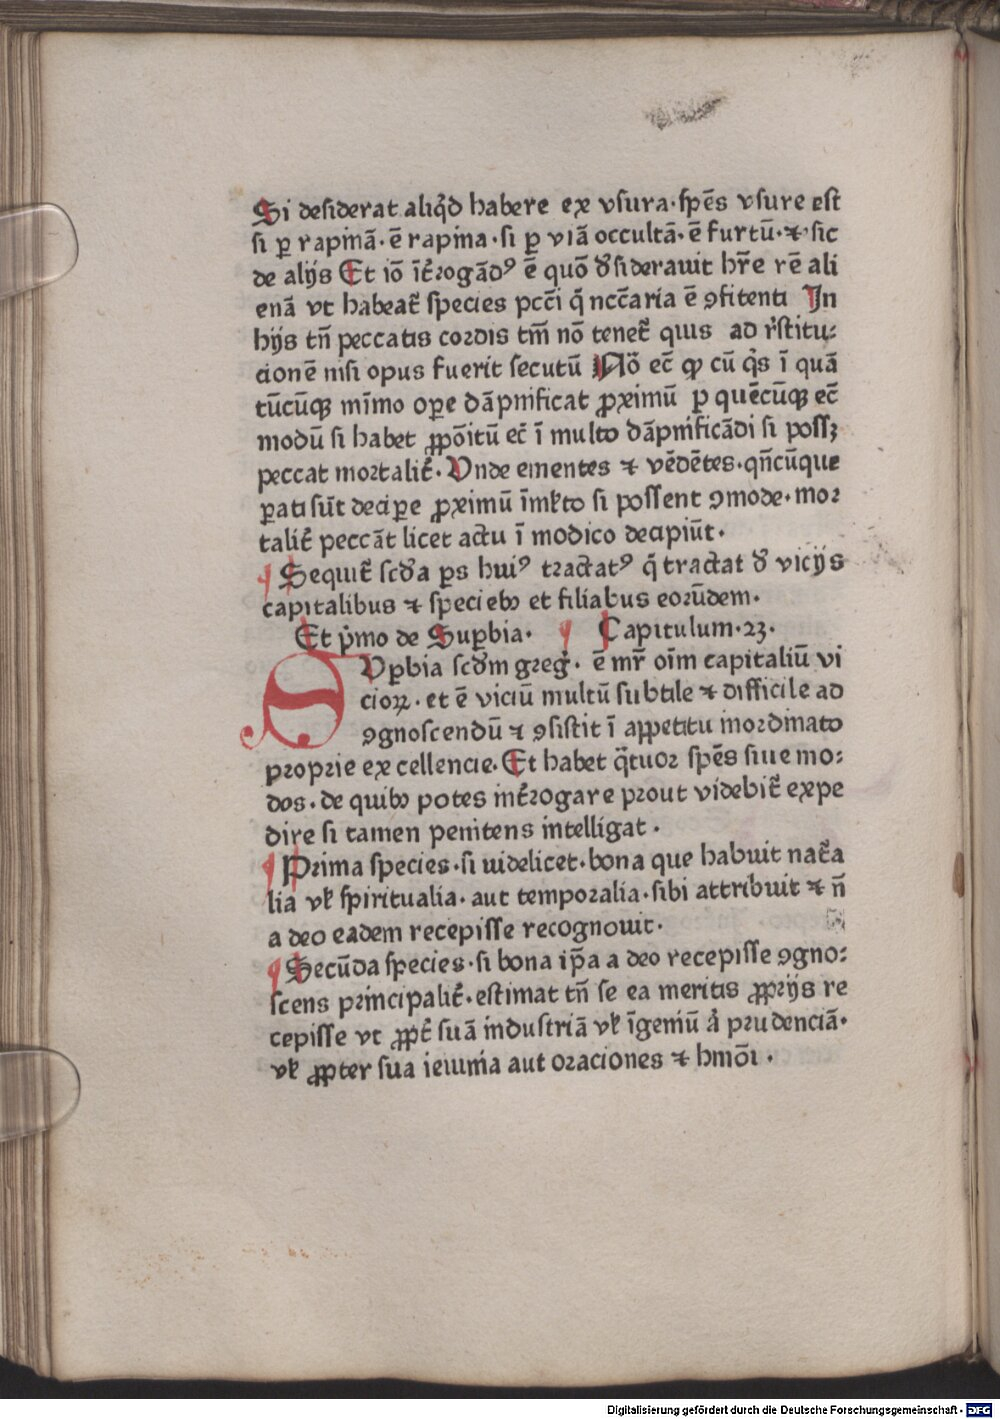 Si desiderat aliq̃d habere ex vsura·spēs vsure est
si ꝑ rapinā·ē rapina·si ꝑ viā occultā·ē furtū·⁊·sic
de alijs Et iō īt̃rogādꝰ ē quō d̃siderauit hr̃e rē ali
enā vt habeat̃ species pcc̄i q̃ ncc̄aria ē ꝯfitenti In
hijs tn̄ peccatis cordis tm̄ nō tenet̃ quis ad r̃stitu:
cionē nisi opus fuerit secutū Nō ec̄ ꝙ cū q̃s ī quā
tūcūqꝫ minimo oꝑe dāpnificat ꝓximū ꝑ quēcūqꝫ ec̄
modū si habet ꝓpōitū ec̃ ī multo dāpnificādi si possꝫ
peccat mortalit̃· Vnde ementes ⁊ vēdētes·qn̄cūque
ꝑati sūt deciꝑe ꝓximū īml̃to si possent ꝯmode·mor
talit̃ peccāt licet actu ī modico decipiūt·
¶ Sequit̃ scd̃a ꝑs huiꝰ tractatꝰ q̃ tractat d̃ vicijs
capitalibus ⁊ speciebꝫ et filiabus eorūdem·
Et p̃mo de Suꝑbia· ¶ Capitulum·23·
SVꝑbia scd̃m greg̃· ē mr̃ oīm capitaliū vi
cioꝝ·et ē viciū multū subtile ⁊ difficile ad
ꝯgnoscendū ⁊ ꝯsistit ī appetitu inordinato
proprie excellencie·Et habet q̃tuor spēs siue mo:
dos·de quibꝫ potes int̃rogare prout videbit̃ expe
dire si tamen penitens intelligat·
¶ Prima species·si uidelicet·bona que habuit nat̃a
lia vl̃ spiritualia·aut temporalia·sibi attribuit ⁊ n̄
a deo eadem recepisse recognouit·
¶ Secūda species·si bona ip̄a a deo recepisse ꝯgno:
scens principalit̃·estimat tn̄ se ea meritis ꝓprijs re
cepisse vt ꝓpt̃ suā industriā vl̃ īgeniū a̾ prudenciā·
vl̃ ꝓpter sua ieiunia aut oraciones ⁊ hmōi·
Digitalisierung gefördert durch die Deutsche Forschungsgemeinschaft - DFG